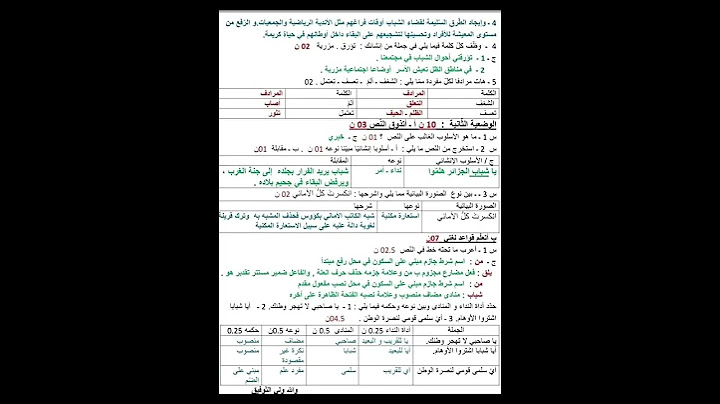 4 - وإيجاد الطرق السليمة لقضاء الشباب أوقات فراغهم مثل الأندية الرياضية والجمعيات.و الرفع من
مستوى المعيشة للأفراد وتحسينها لتشجيعهم على البقاء داخل أوطانهم في حياة كريمة.
4 - وظّف كلّ كلمة فيما يلي في جملة من إنشائك : تؤرق . مزرية 02 ن
ج - 1 - تؤرقني أحوال الشباب في مجتمعنا .
2 - في مناطق الظل تعيش الأسر أوضاعا اجتماعية مزرية .
5 - هات مرادفا لكلّ مفردة ممّا يلي : الشغف - ألمّ - تعسف - تعتمل . 02
الكلمة المرادف الكلمة المرادف
الشغف التعلق ألمّ أصاب
تعسف الظلم - الحيف تعتمل تثور
الوضعية الثانية : 10 ن أ - أتذوق النّص 03 ن
س 1 - ما هو الأسلوب الغالب على النّص ؟ 01 ن ج - خبري
س 2 - استخرج من النّص ما يلي : أ - أسلوبا إنشائيّا مبيّنا نوعه 01 ن . ب - مقابلة 01ن
ج / الأسلوب الانشائي نوعه المقابلة
يا شباب الجزائر هلمّوا نداء - أمر شباب يريد الفرار بجلده إلى جنة الغرب ،
ويرفض البقاء في جحيم بلاده .
س 3 - - بين نوع الصّورة البيانية مما يلي واشرحها : انكسرتْ كلّ الأماني 02 ن
الصورة البيانية نوعها شرحها
انكسرتْ كلّ الأماني استعارة مكنية شبه الكاتب الأماني بكؤوس فحذف المشبه به وترك قرينة
لغوية دالة عليه على سبيل الاستعارة المكنية
ب أتعلّم قواعد لغتي 07ن
س 1 - أعرب ما تحته خط في النّص 02.5 ن
ج - من : اسم شرط جازم مبني على السكون في محل رفع مبتدأ
يلق : فعل مضارع مجزوم ب من وعلامة جزمه حذف حرف العلة . والفاعل ضمير مستتر تقدير هو .
من : اسم شرط جازم مبني على السكون في محل نصب مفعول مقدم
شباب : منادى مضاف منصوب وعلامة نصبه الفتحة الظاهرة على آخره
حدّد أداة النداء و المنادى وبين نوعه وحكمه فيما يلي : 1 - يا صاحبي لا تهجر وطنك. 2 - أيا شبابا
اشتروا الأوهام. 3 - أيْ سلمي قومي لنصرة الوطن . 04.5ن
الجملة أداة النداء 0.25 ن المنادى 0.5 ن نوعه 0.5ن حكمه 0.25
يا صاحبي لا تهجر وطنك. يا للقريب و البعيد صاحبي مضاف منصوب
أيا شبابا اشتروا الأوهام. أيا للبعيد شبابا نكرة غير منصوب
مقصودة
أيْ سلمي قومي لنصرة الوطن أي للقريب سلمي مفرد علم مبني على
الضّم
والله ولي التّوفيق